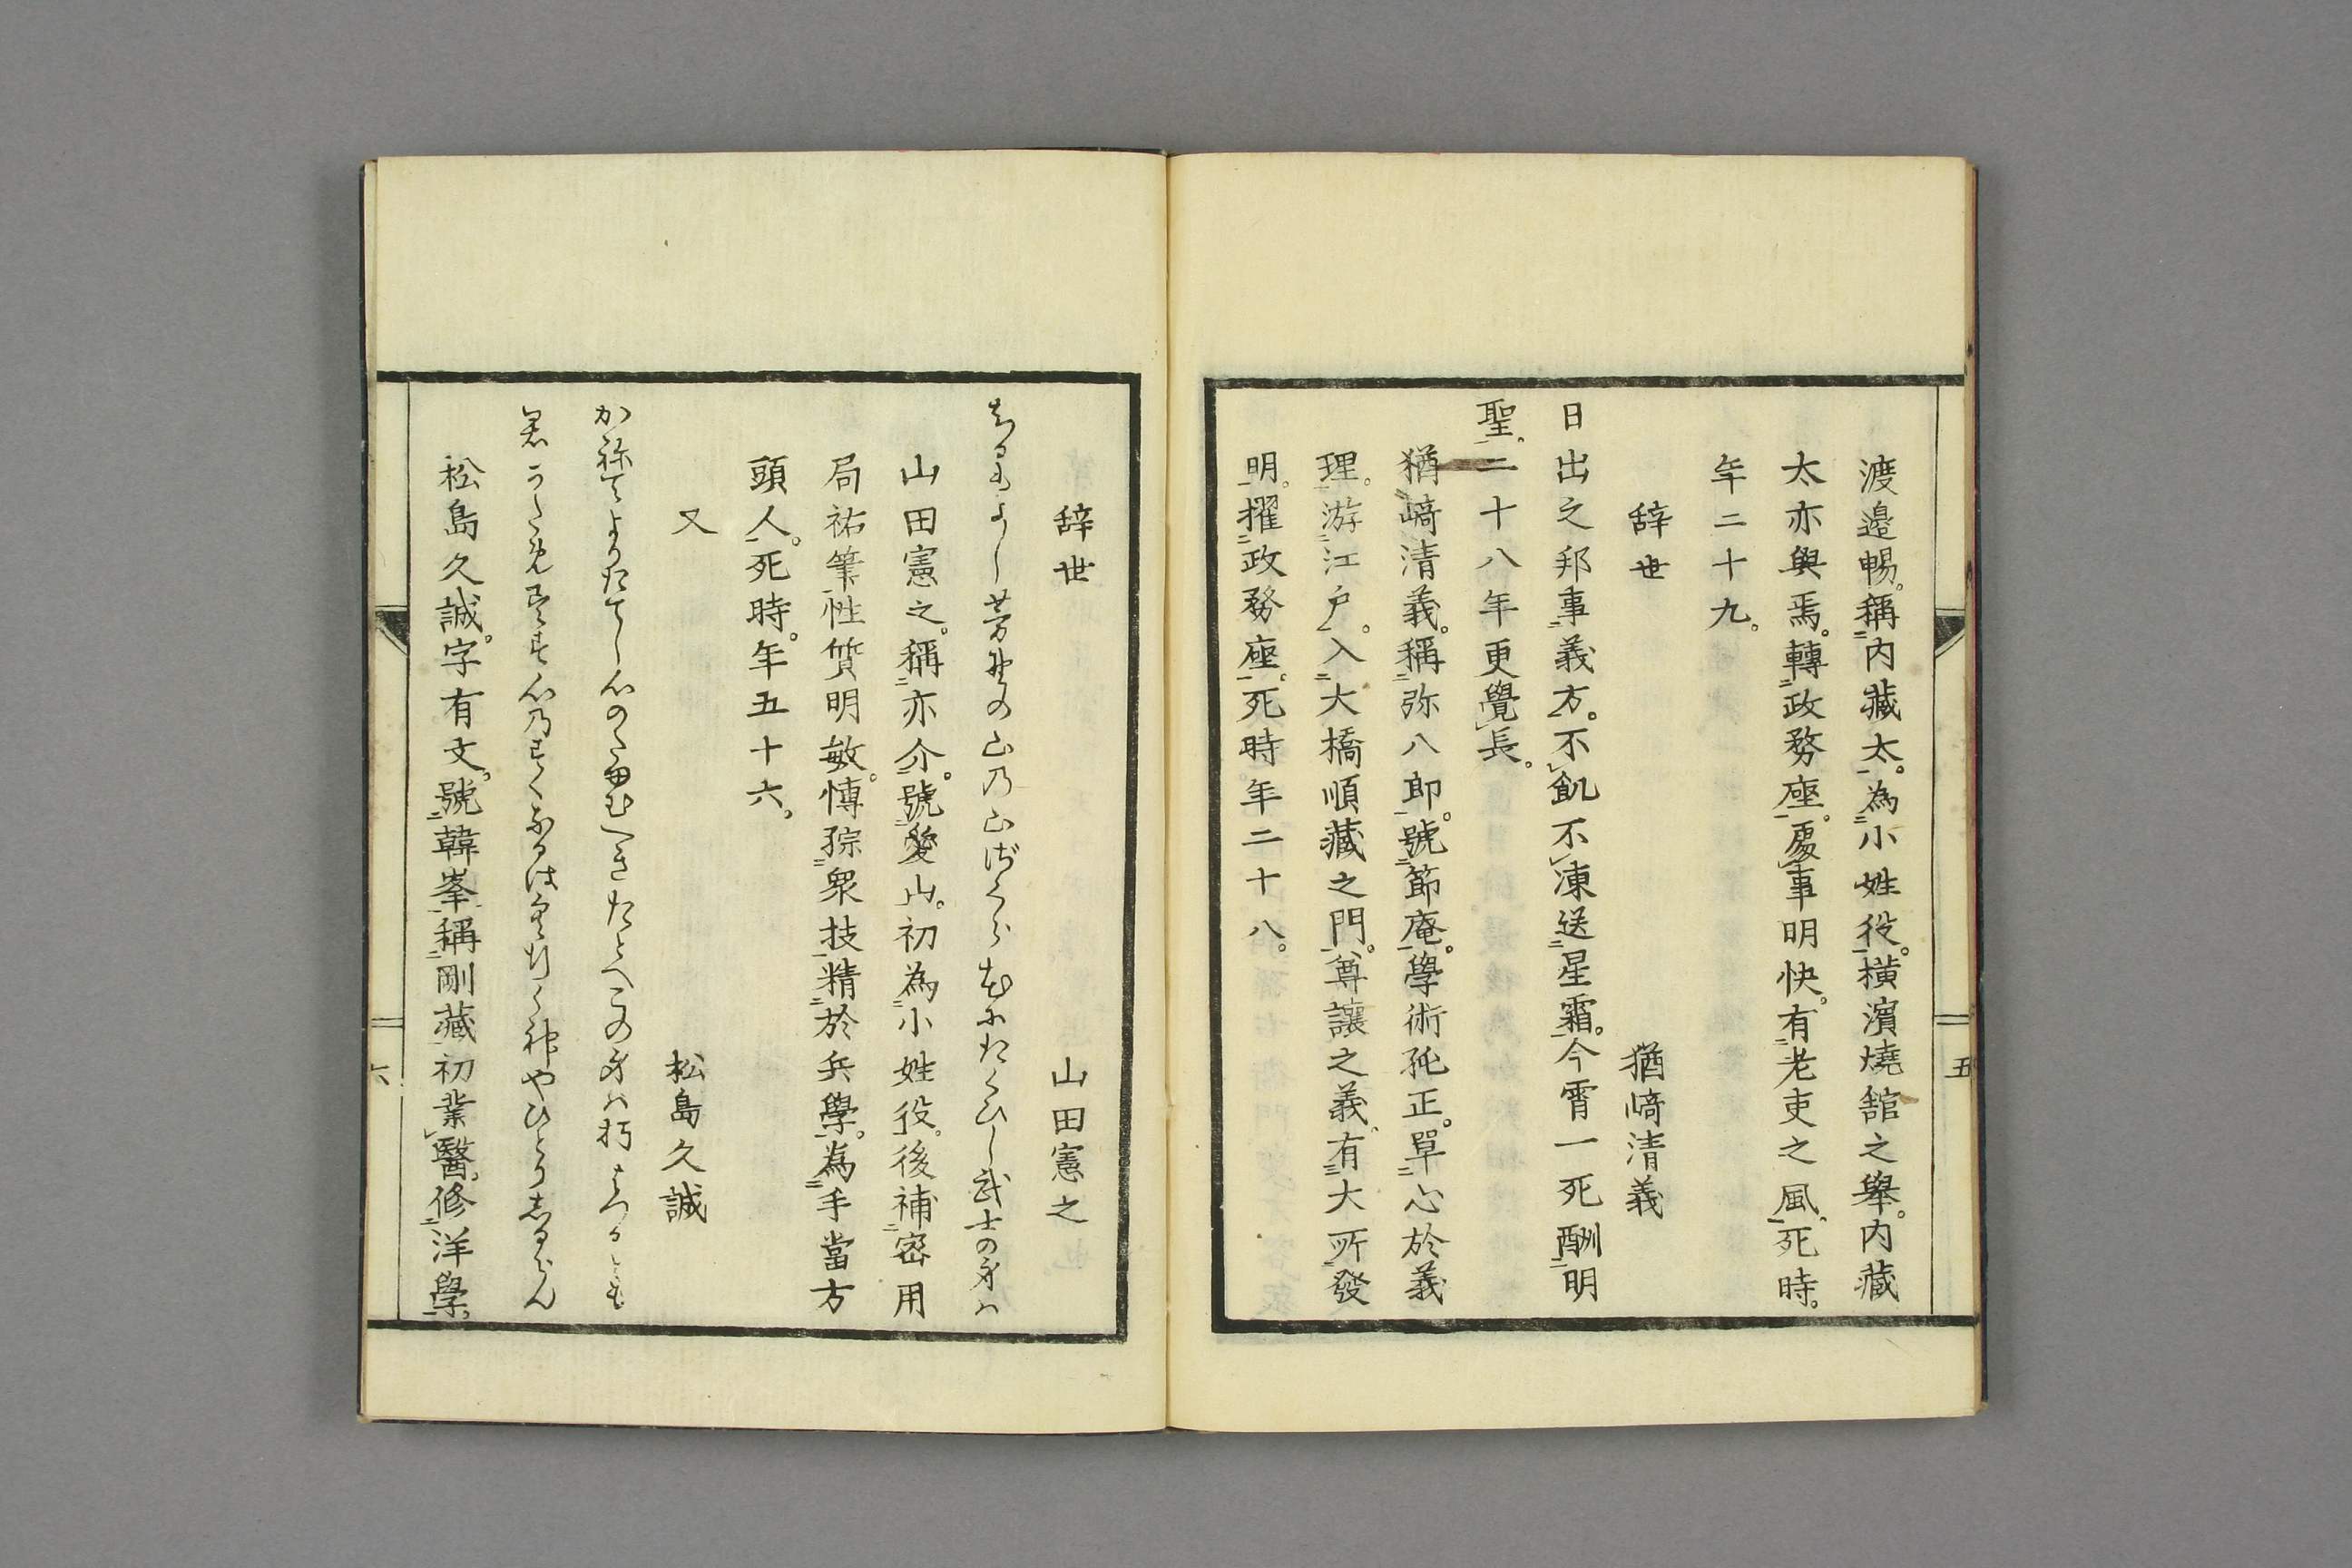 渡邉暢。稱内藏太。為小姓役。横濱燒舘之舉。内藏
太亦與焉。轉政務座。處事明快。有老吏之風。死時。
年二十九。
辞世　　猶﨑清義
日出之邦事義方。不飢不凍送星霜。今霄一死酬明
聖。二十八年更覺長。
猶﨑清義。稱弥八郎。號節庵。學術純正。單心於義
理。游江戸。入大橋順藏之門。尊讓之義。有大所發
明。擢政務座。死時年二十八。
五
辞世　　山田憲之
山乃山武士の身ハ
山田憲之。稱亦介。號愛山。初為小姓役。後補密用
局祐筆。性質明敏。愽綜衆技。精於兵學。為手當方
頭人。死時。年五十六。
又　　松島久誠
か祢てよりたてし心のへきたとへこの身ハ朽
君心乃神やひとりしるらん
松島久誠。字有文。號韓峯。稱剛藏。初業醫。修洋學。
六